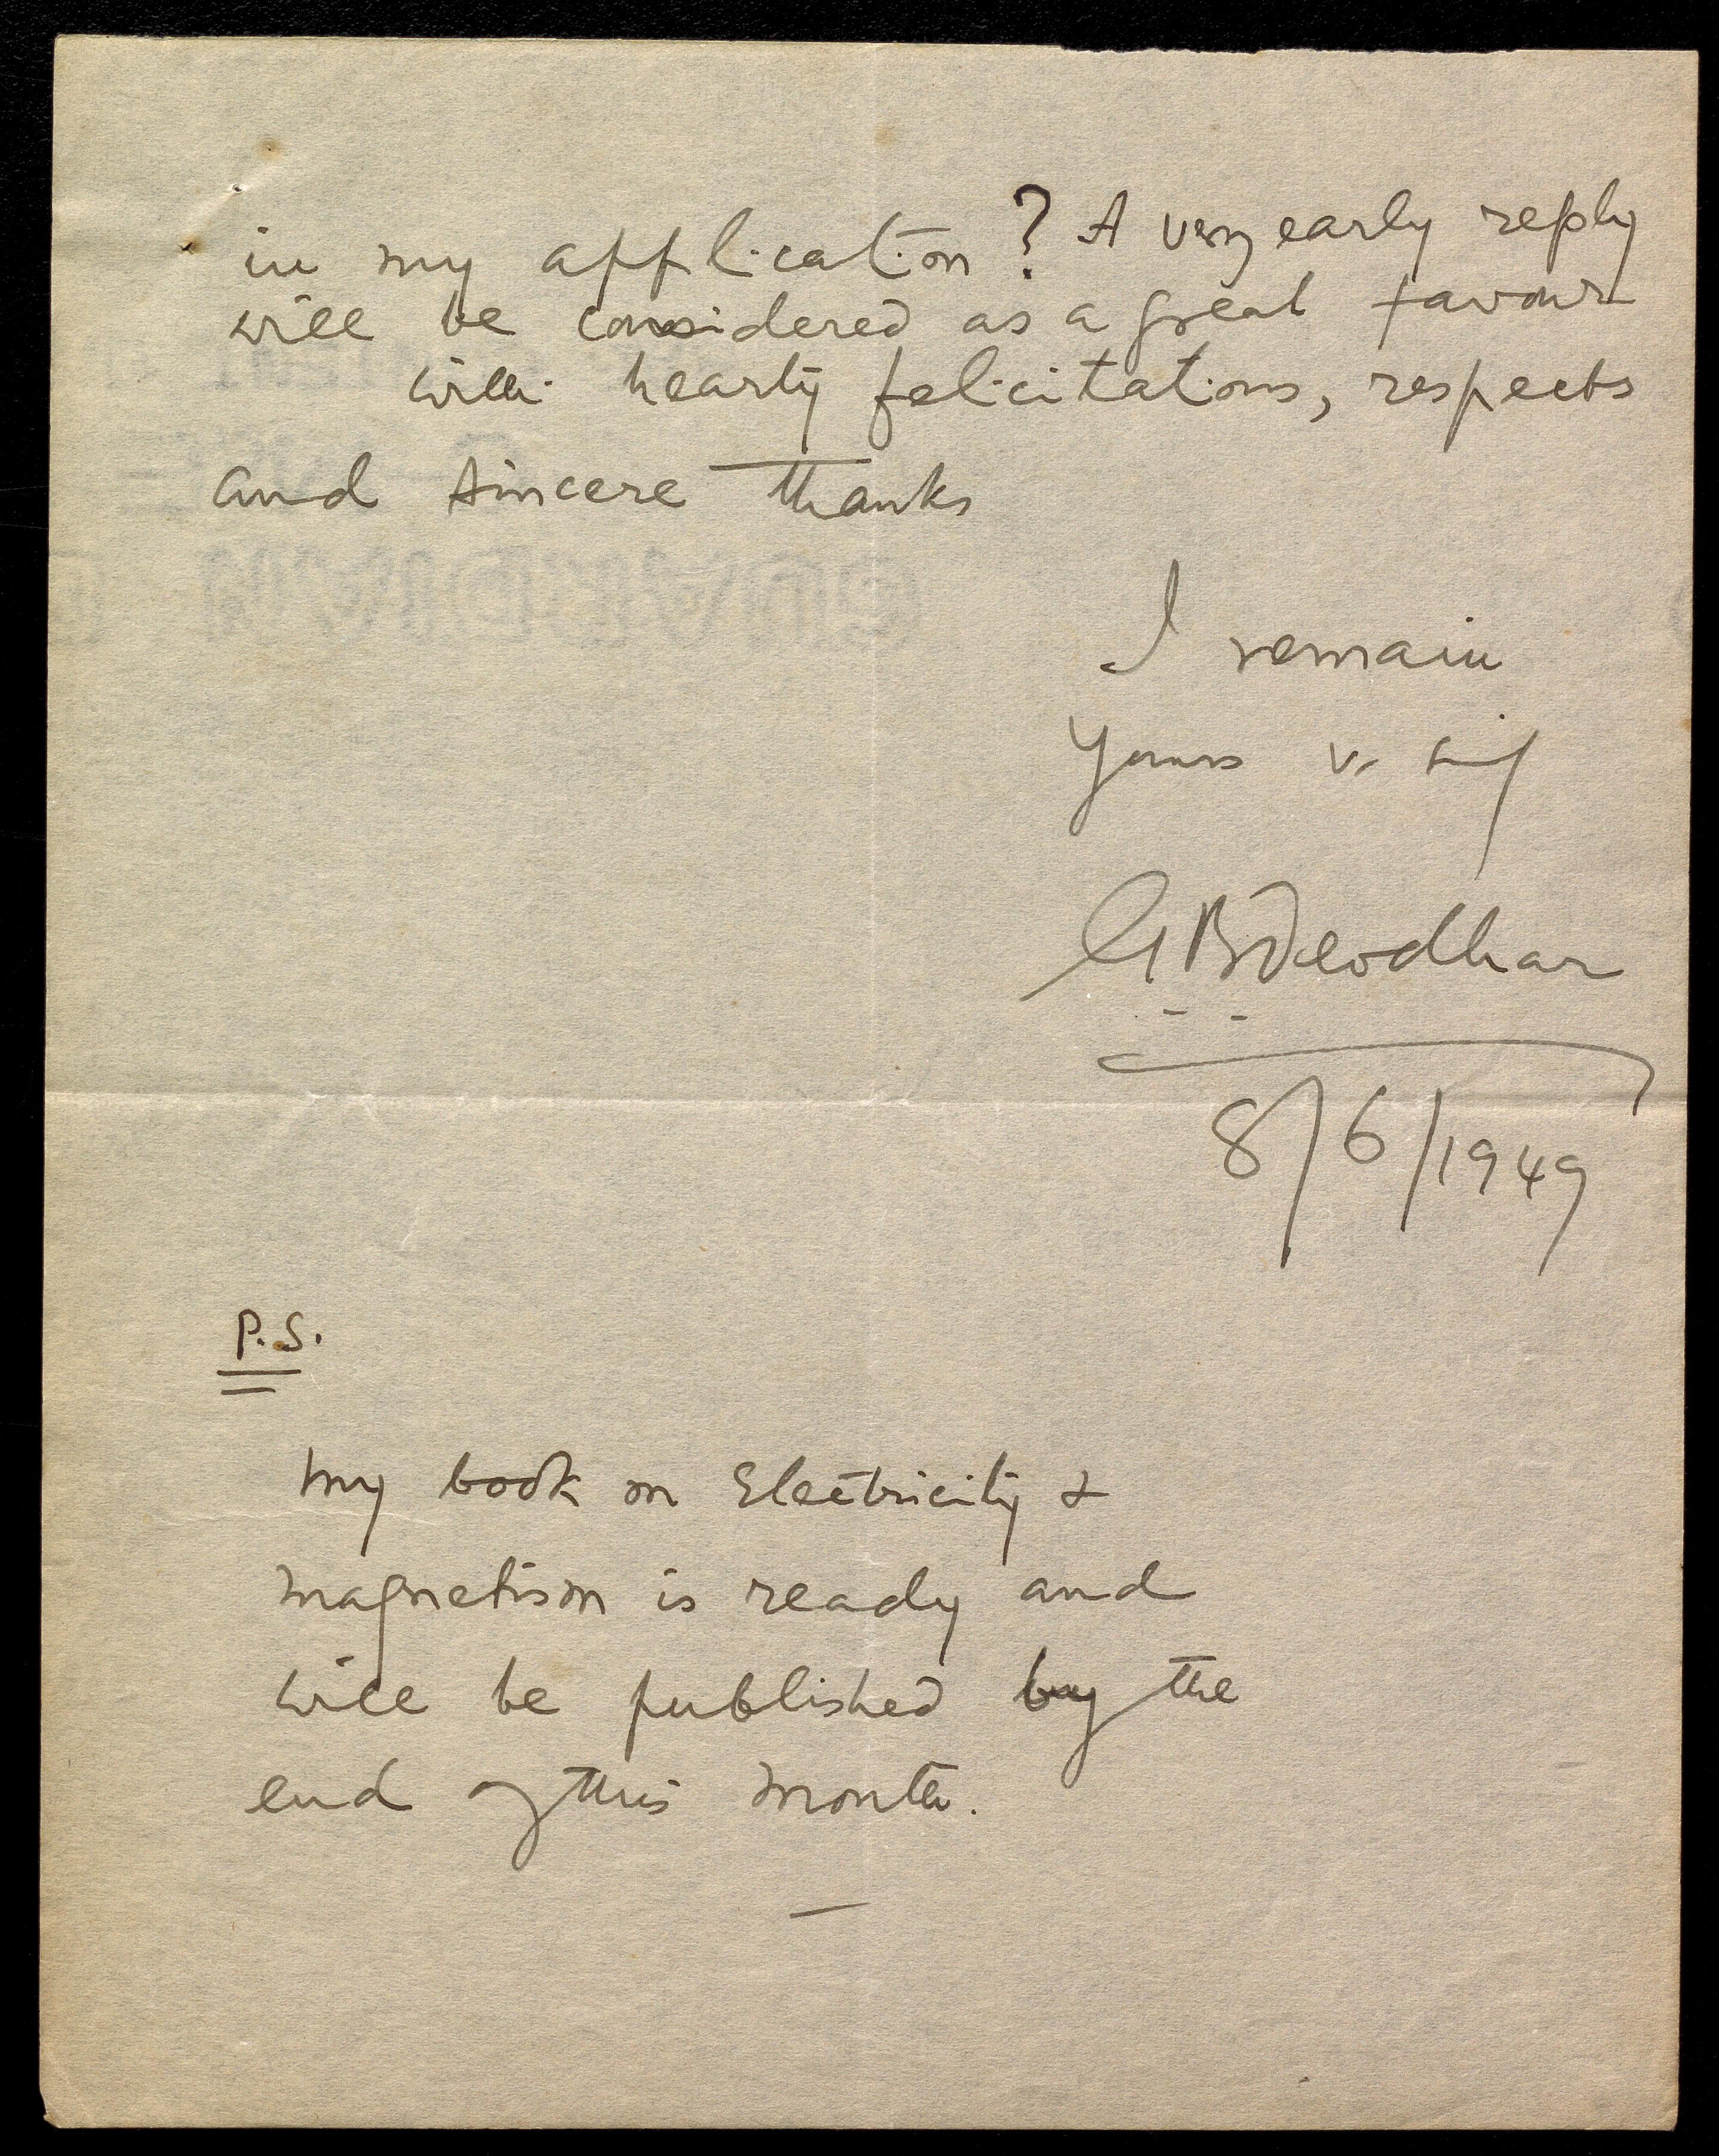 in my application? A very early reply
will be considered as a great favour
with hearty felicitations, respects
and sincere thanks
I remain
Yours v.
G B Deodhar
8/6/1949
P.S.
My book on Electricity &
magnetism is ready and
will be published by the
end of this month.